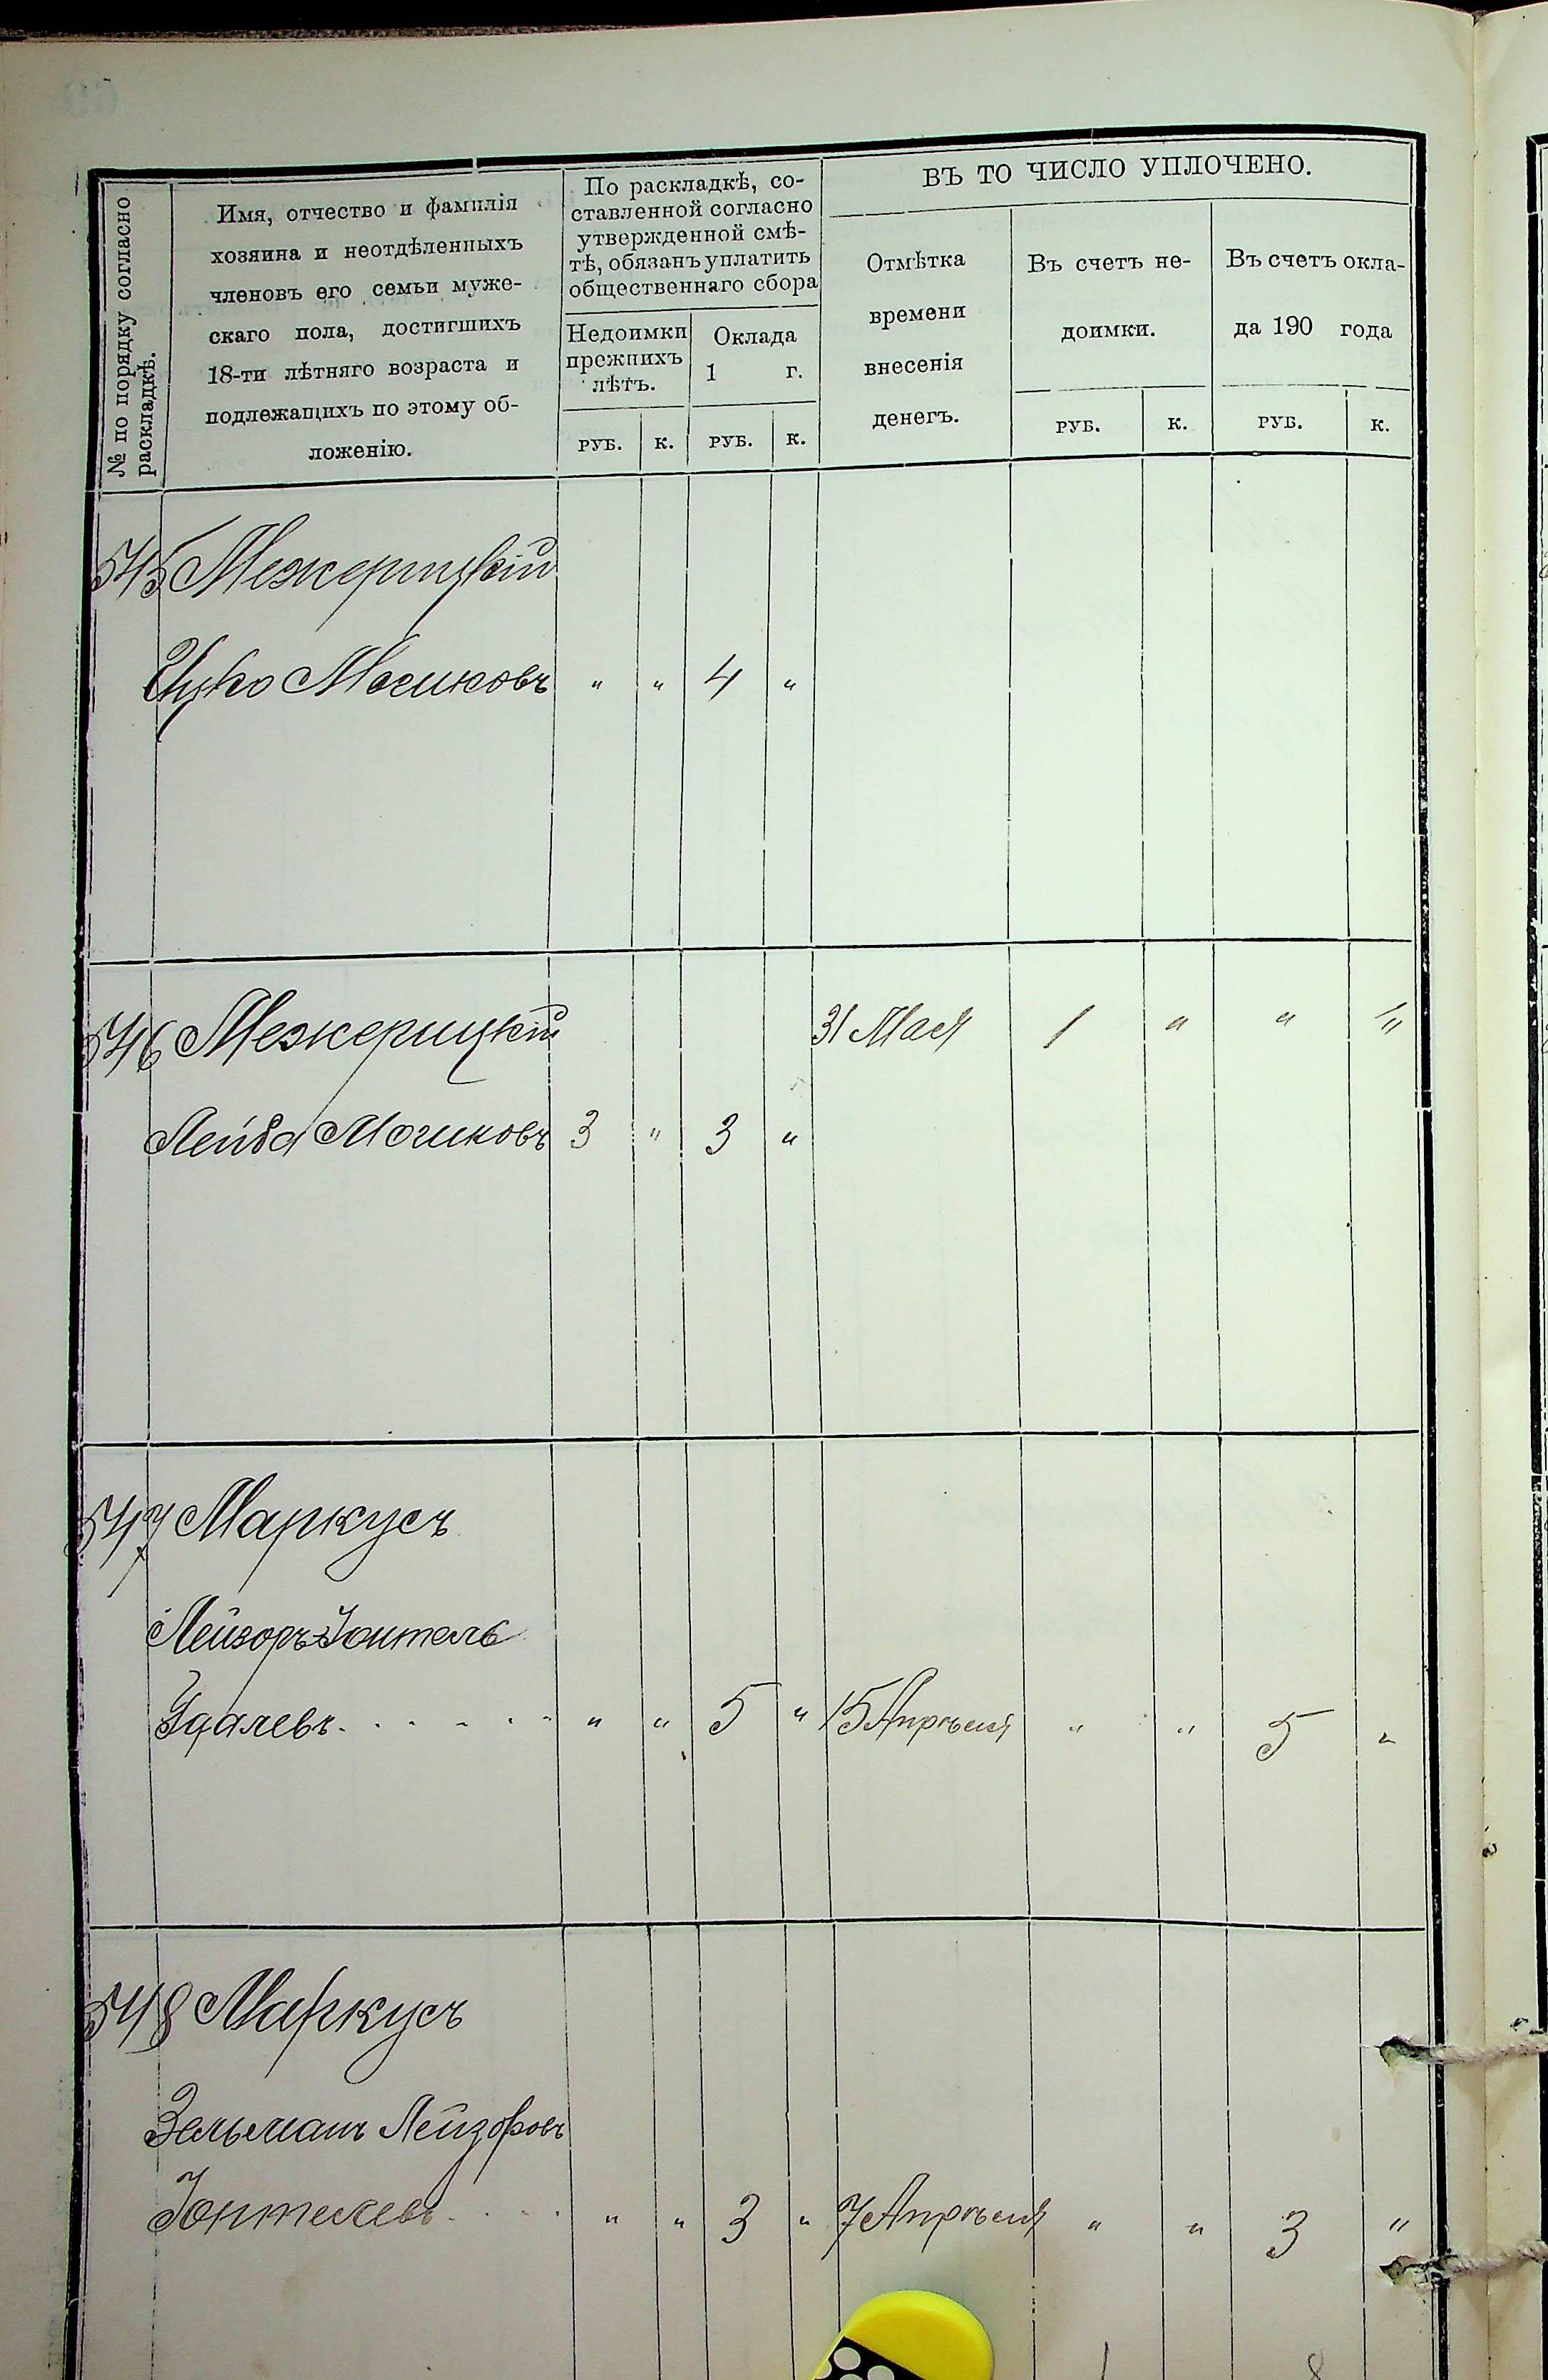 № по порядку согласно
раскладкѣ.
Имя, отчество и фамилія
хозяина и неотдѣленныхъ
членовъ его семьи муже-
скаго пола, достигшихъ
18-ти лѣтняго возраста и
подлежащихъ по этому об-
ложенію.
По раскладкѣ, со-
ставленной согласно
утвержденной смѣ-
тѣ, обязанъ уплатить
общественнаго сбора
Недоимки
прежнихъ
лѣтъ.
Оклада
1 г.
РУБ. К. РУБ. К.
ВЪ ТО ЧИСЛО УПЛОЧЕНО.
Отмѣтка
времени
внесенія
денегъ.
Въ счетъ не-
доимки.
РУБ. К.
Въ счетъ окла-
да 190 года
РУБ. К.
545 Межерицкій
Ицко Мосиковъ " " 4 "
546 Межерицкій 31 Мая 1 " " "
Лейба Мосиковъ 3 " 3 "
547 Маркусъ
Лейзоръ-Іонтель
Удалевъ. . . . . . " " 5 " 15 Апрѣля " " 5 "
548 Маркусъ
Зельманъ Лейзоровъ
Іонтелевъ . . . . " " 3 " 7 Апрѣля " " 3 "